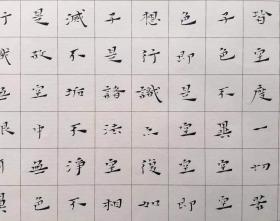 皆空度一切苦
子色不異空空
色即是空空即
想行識亦復如
子是諸法空相
滅不垢不淨不
是故空中無色